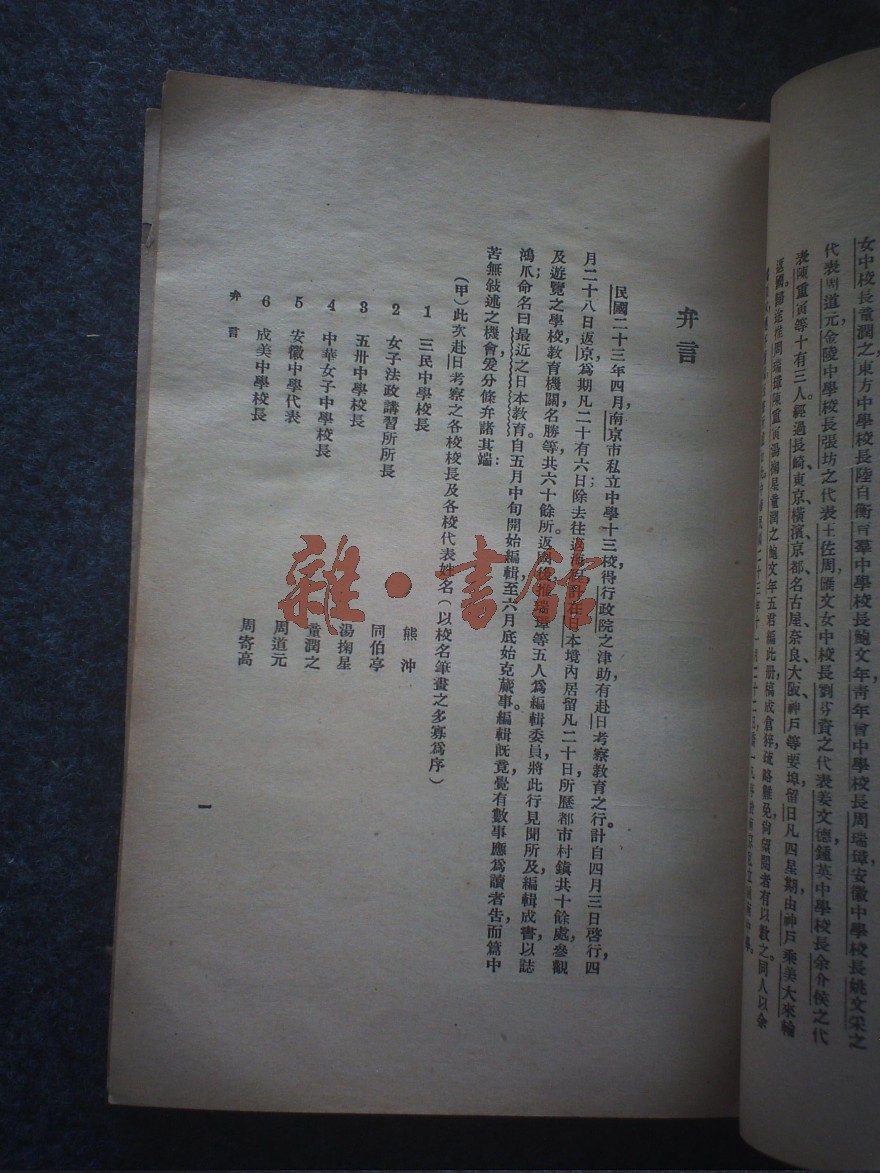 女中校長童潤之東方中學校長陸自衡育羣中學校長鮑文年青年會中學校長周瑞璋安徽中學校長姚文采之
代表周道元金陵中學校長張坊之代表王佐周匯文女中校長劉芬資之代表姜文德鍾英中學校長余介侯之代
表陳重寅等十有三人。經過長崎、東京、橫濱、京都、名古屋、奈良、大阪、神戶等要埠留日凡四星期由神戶乘美大來輪
返國歸途推周瑞璋陳重寅湯掬星童潤之鮑文年五君編此册稿成倉猝疏略難免尚望閱者有以教之同人以余
弁言
民國二十三年四月，南京市私立中學十三校，得行政院之津助有赴日考察教育之行。計自四月三日啓行，四
月二十八日返京，爲期凡二十有六日；除去往返海程計在日本境內居留凡二十日所歷都市村鎮共十餘處，參觀
及遊覽之學校教育機關名勝等共六十餘所。返國後推瑞璋等五人爲編輯委員，將此行見聞所及，編輯成書以誌
鴻爪；命名曰最近之日本教育。自五月中旬開始編輯，至六月底始克蕆事。編輯既竟，覺有數事應爲讀者告，而篇中
苦無敍述之機會，爰分條弁諸其端：
（甲）此次赴日考察之各校校長及各校代表姓名（以校名筆畫之多寡爲序）
1 三民中學校長 熊沖
2 女子法政講習所所長 同伯亭
3 五卅中學校長
4 中華女子中學校長 湯掬星
童潤之
5 安徽中學代表 周道元
6 成美中學校長 周寄高
弁言
一
雜·書館